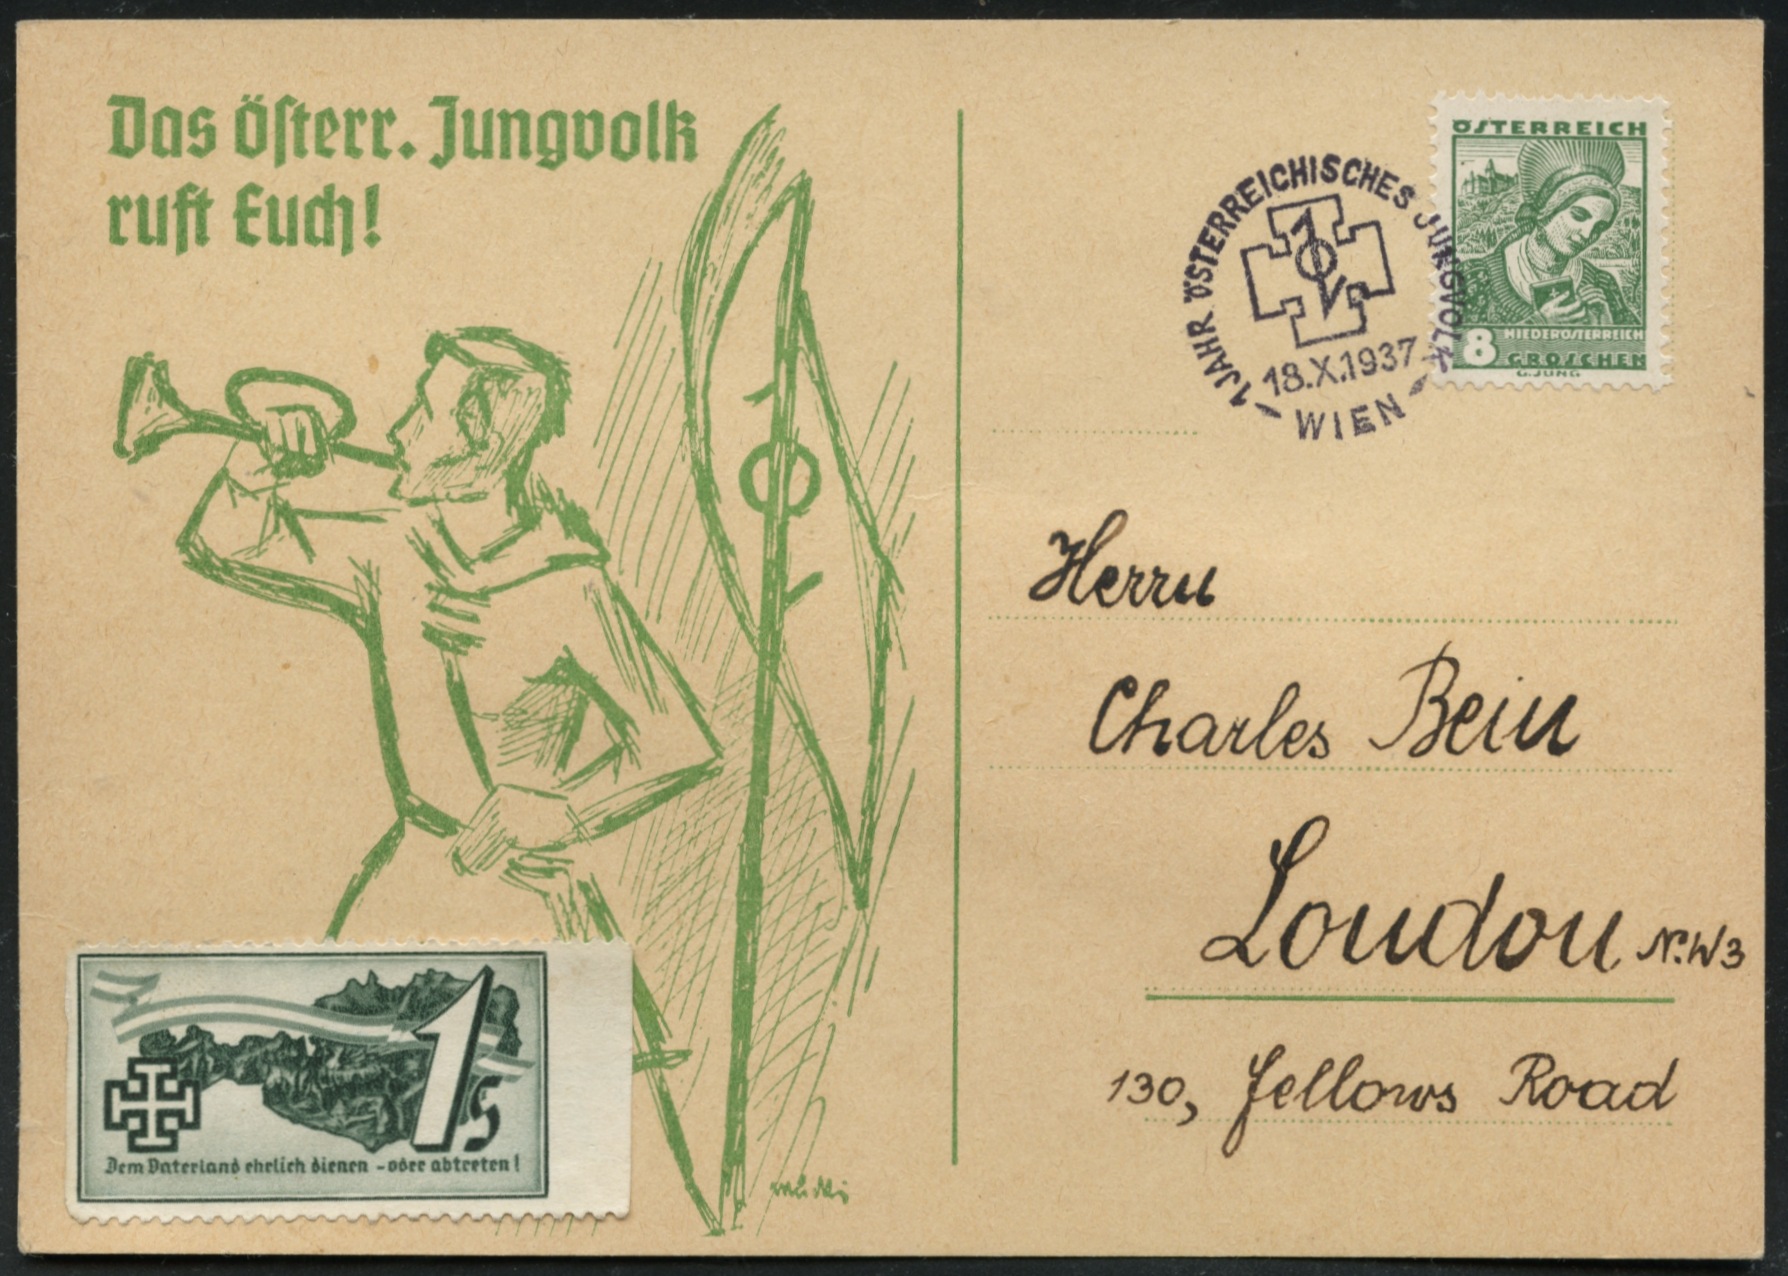 Das Österr. Jungvolk
ruft Euch!
ÖSTERREICH
NIEDERÖSTERREICH
8 GROSCHEN
G. JUNG
1 JAHR ÖSTERREICHISCHES JUNGVOLK
18.X.1937
WIEN
Herrn
Charles Bein
London N.W3
130, Fellows Road
1 S
Dem Vaterland ehrlich dienen - oder abtreten!